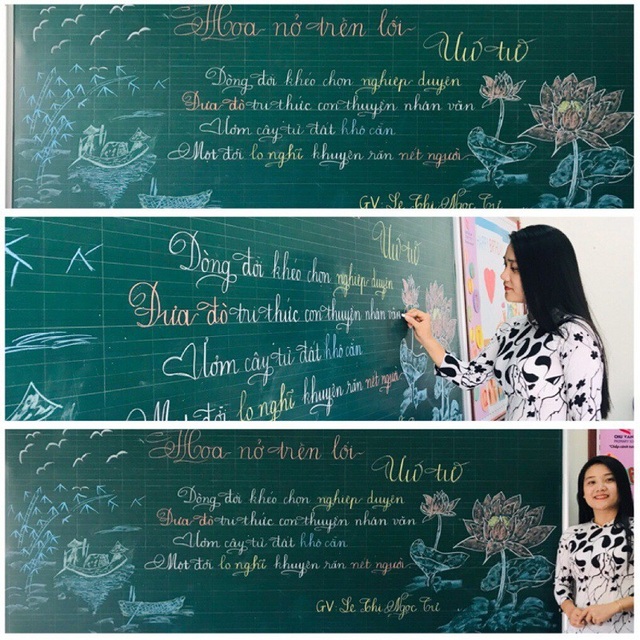 Hoa nở trên lối
Ưu tư
Dòng đời khéo chọn nghiệp duyên
Đưa đò tri thức con thuyền nhân văn
Ươm cây từ đất khô cằn
Một đời lo nghĩ khuyên răn nết người
GV: Lê Thị Ngọc
Ưu tư
Dòng đời khéo chọn nghiệp duyên
Đưa đò tri thức con thuyền nhân văn
Ươm cây từ đất khô cằn
Một đời lo nghĩ khuyên răn nết người
Hoa nở trên lối
Ưu tư
Dòng đời khéo chọn nghiệp duyên
Đưa đò tri thức con thuyền nhân văn
Ươm cây từ đất khô cằn
Một đời lo nghĩ khuyên răn nết người
GV: Lê Thị Ngọc